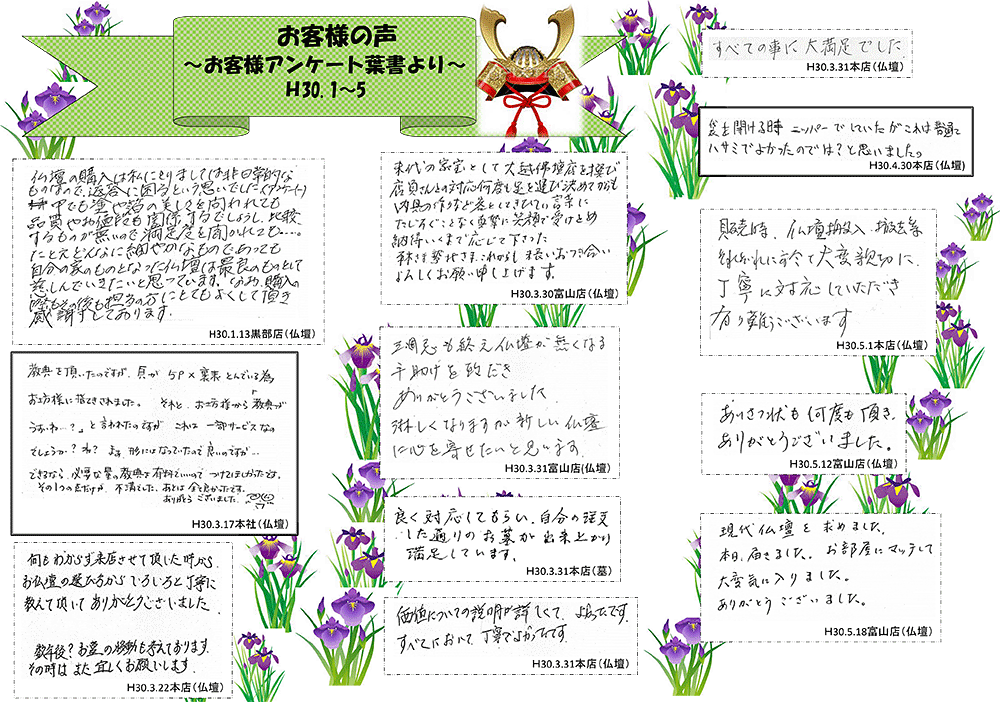 お客様の声
～お客様アンケート葉書より～
H30. 1～5
仏壇の購入は私にとりましては非日常的な
ものなので、返答に困るという思いでした(アンケート)
中でも塗や箔の美しさを問われても
品質やお値段も関係するでしょうし、比較
するものが無いので満足度を聞かれても…。
たとえどんなに細やかなものであっても
自分の家のものとなった仏壇は最良のものとして
慈しんでいきたいと思っています。なお、購入の
際もその後も担当の方にとてもよくして頂き
感謝しております。
H30.1.13黒部店（仏壇）
教典を頂いたのですが、頁が 5P×裏表とんでいる為
お寺様に指てきされました。 それと、お寺様から「教典が
うすいわ…?」と言われたのですが これは 一部サービスなの
でしょうか?ね? まぁ、形にはなっていたので良いのですが…
できるなら、必要な量の教典を有料でいいので つけてほしかったです。
その1つの点だけが、不満でした。あとは全て良かったです。
ありがとうございました。
H30.3.17本社（仏壇）
何もわからず来店させて頂いた時から、
お仏壇の選び方から いろいろと丁寧に
教えて頂いて ありがとうございました
数年後? お墓の移動も考えております。
その時は また 宜しくお願いします。
H30.3.22本店（仏壇）
末代の家宝として 大越仏壇店を選び
店員さんとの対応何度も足を運び決めてからも
内具の作りなど
たじろぐことなく真摯に笑顔で受けとめ
納得いくまで応じて下さった
林さま 幸せさま これからも 末長いおつき合い
よろしくお願い申し上げます。
H30.3.30富山店（仏壇）
三周忌も終え 仏壇が無くなる
手助けを頂だき
ありがとうございました
淋しくなりますが 新しい仏壇
に心を寄せたいと思います。
H30.3.31富山店(仏壇)
良く対応してもらい、自分の注文
した通りのお墓が出来上がり
満足しています。
H30.3.31本店（墓）
価値についての説明が詳しくて、よかったです。
すべてにおいて 丁寧でよかったです
H30.3.31本店（仏壇）
すべての事に大満足でした
H30.3.31本店（仏壇）
袋を開ける時 ニッパーでしていたがこれは普通の
ハサミでよかったのでは?と思いました。
H30.4.30本店（仏壇）
販売時、仏壇搬入、搬送等
それぞれに於て大変親切に、
丁寧に対応していただき
有り難うございます
H30.5.1本店（仏壇）
あいさつ状も何度も頂き、
ありがとうございました。
H30.5.12富山店（仏壇）
現代仏壇を求めました。
本日、届きました。 お部屋にマッチして
大変気に入りました。
ありがとうございました。
H30.5.18富山店（仏壇）